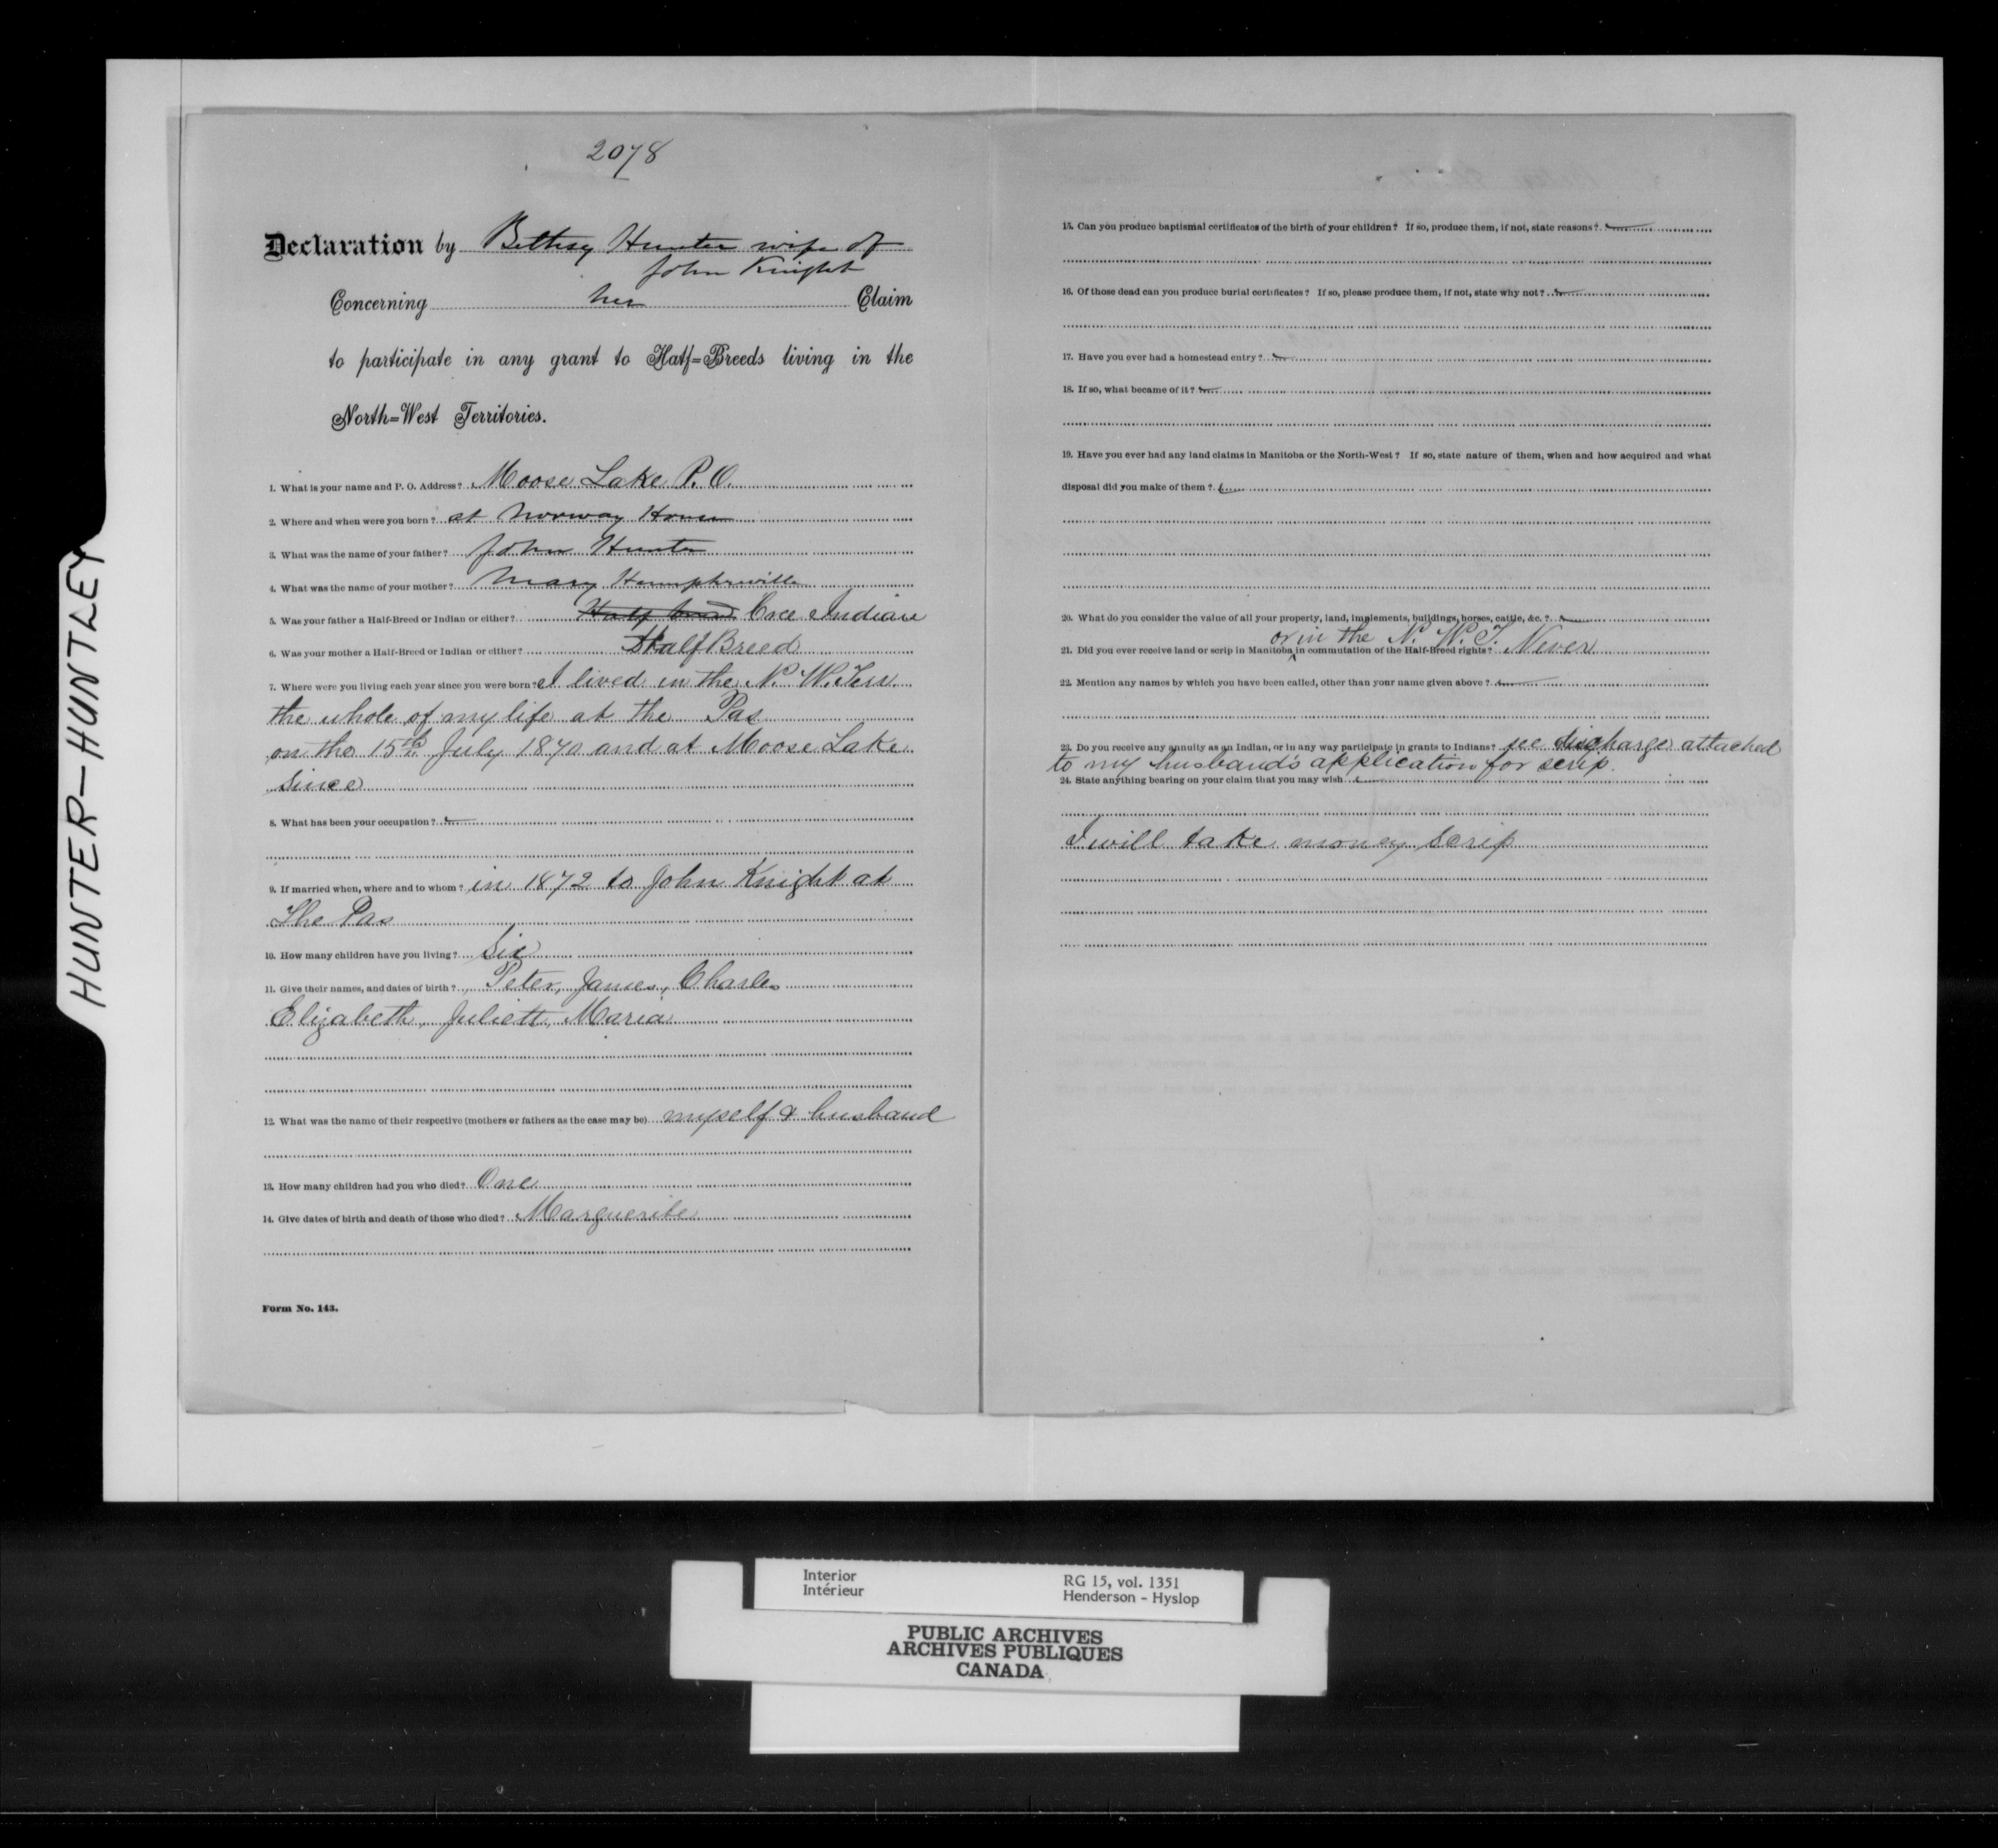 2078
Declaration by Bethsy Hunter wife of
John Knight
Concerning her Claim
to participate in any grant to Half=Breeds living in the
North=West Territories.
1. What is your name and P. O. Address? Moose Lake P. O.
2. Where and when were you born? at Norway House
3. What was the name of your father? John Hunter
4. What was the name of your mother? Mary Humphreville
5. Was your father a Half-Breed or Indian or either? Half breed Cree Indian
6. Was your mother a Half-Breed or Indian or either? Half Breed
7. Where were you living each year since you were born? I lived in the N. W. Terr.
the whole of my life at the Pas
on the 15th July 1870 and at Moose Lake
since
8. What has been your occupation?
9. If married when, where and to whom? in 1872 to John Knight at
The Pas
10. How many children have you living? Six
11. Give their names, and dates of birth? Peter, James, Charles
Elizabeth, Juliett, Maria
12. What was the name of their respective (mothers or fathers as the case may be) myself & husband
13. How many children had you who died? One
14. Give dates of birth and death of those who died? Marguerite
Form No. 143.
15. Can you produce baptismal certificates of the birth of your children? If so, produce them, if not, state reasons?
16. Of those dead can you produce burial certificates? If so, please produce them, if not, state why not?
17. Have you ever had a homestead entry?
18. If so, what became of it?
19. Have you ever had any land claims in Manitoba or the North-West? If so, state nature of them, when and how acquired and what
disposal did you make of them?
20. What do you consider the value of all your property, land, implements, buildings, horses, cattle, &c.?
or in the N. W. T.
21. Did you ever receive land or scrip in Manitoba in commutation of the Half-Breed rights? Never
22. Mention any names by which you have been called, other than your name given above?
23. Do you receive any annuity as an Indian, or in any way participate in grants to Indians? see discharge attached
to my husband's application for scrip.
24. State anything bearing on your claim that you may wish
I will take money scrip
HUNTER-HUNTLEY
Interior
Intérieur
RG 15, vol. 1351
Henderson - Hyslop
PUBLIC ARCHIVES
ARCHIVES PUBLIQUES
CANADA